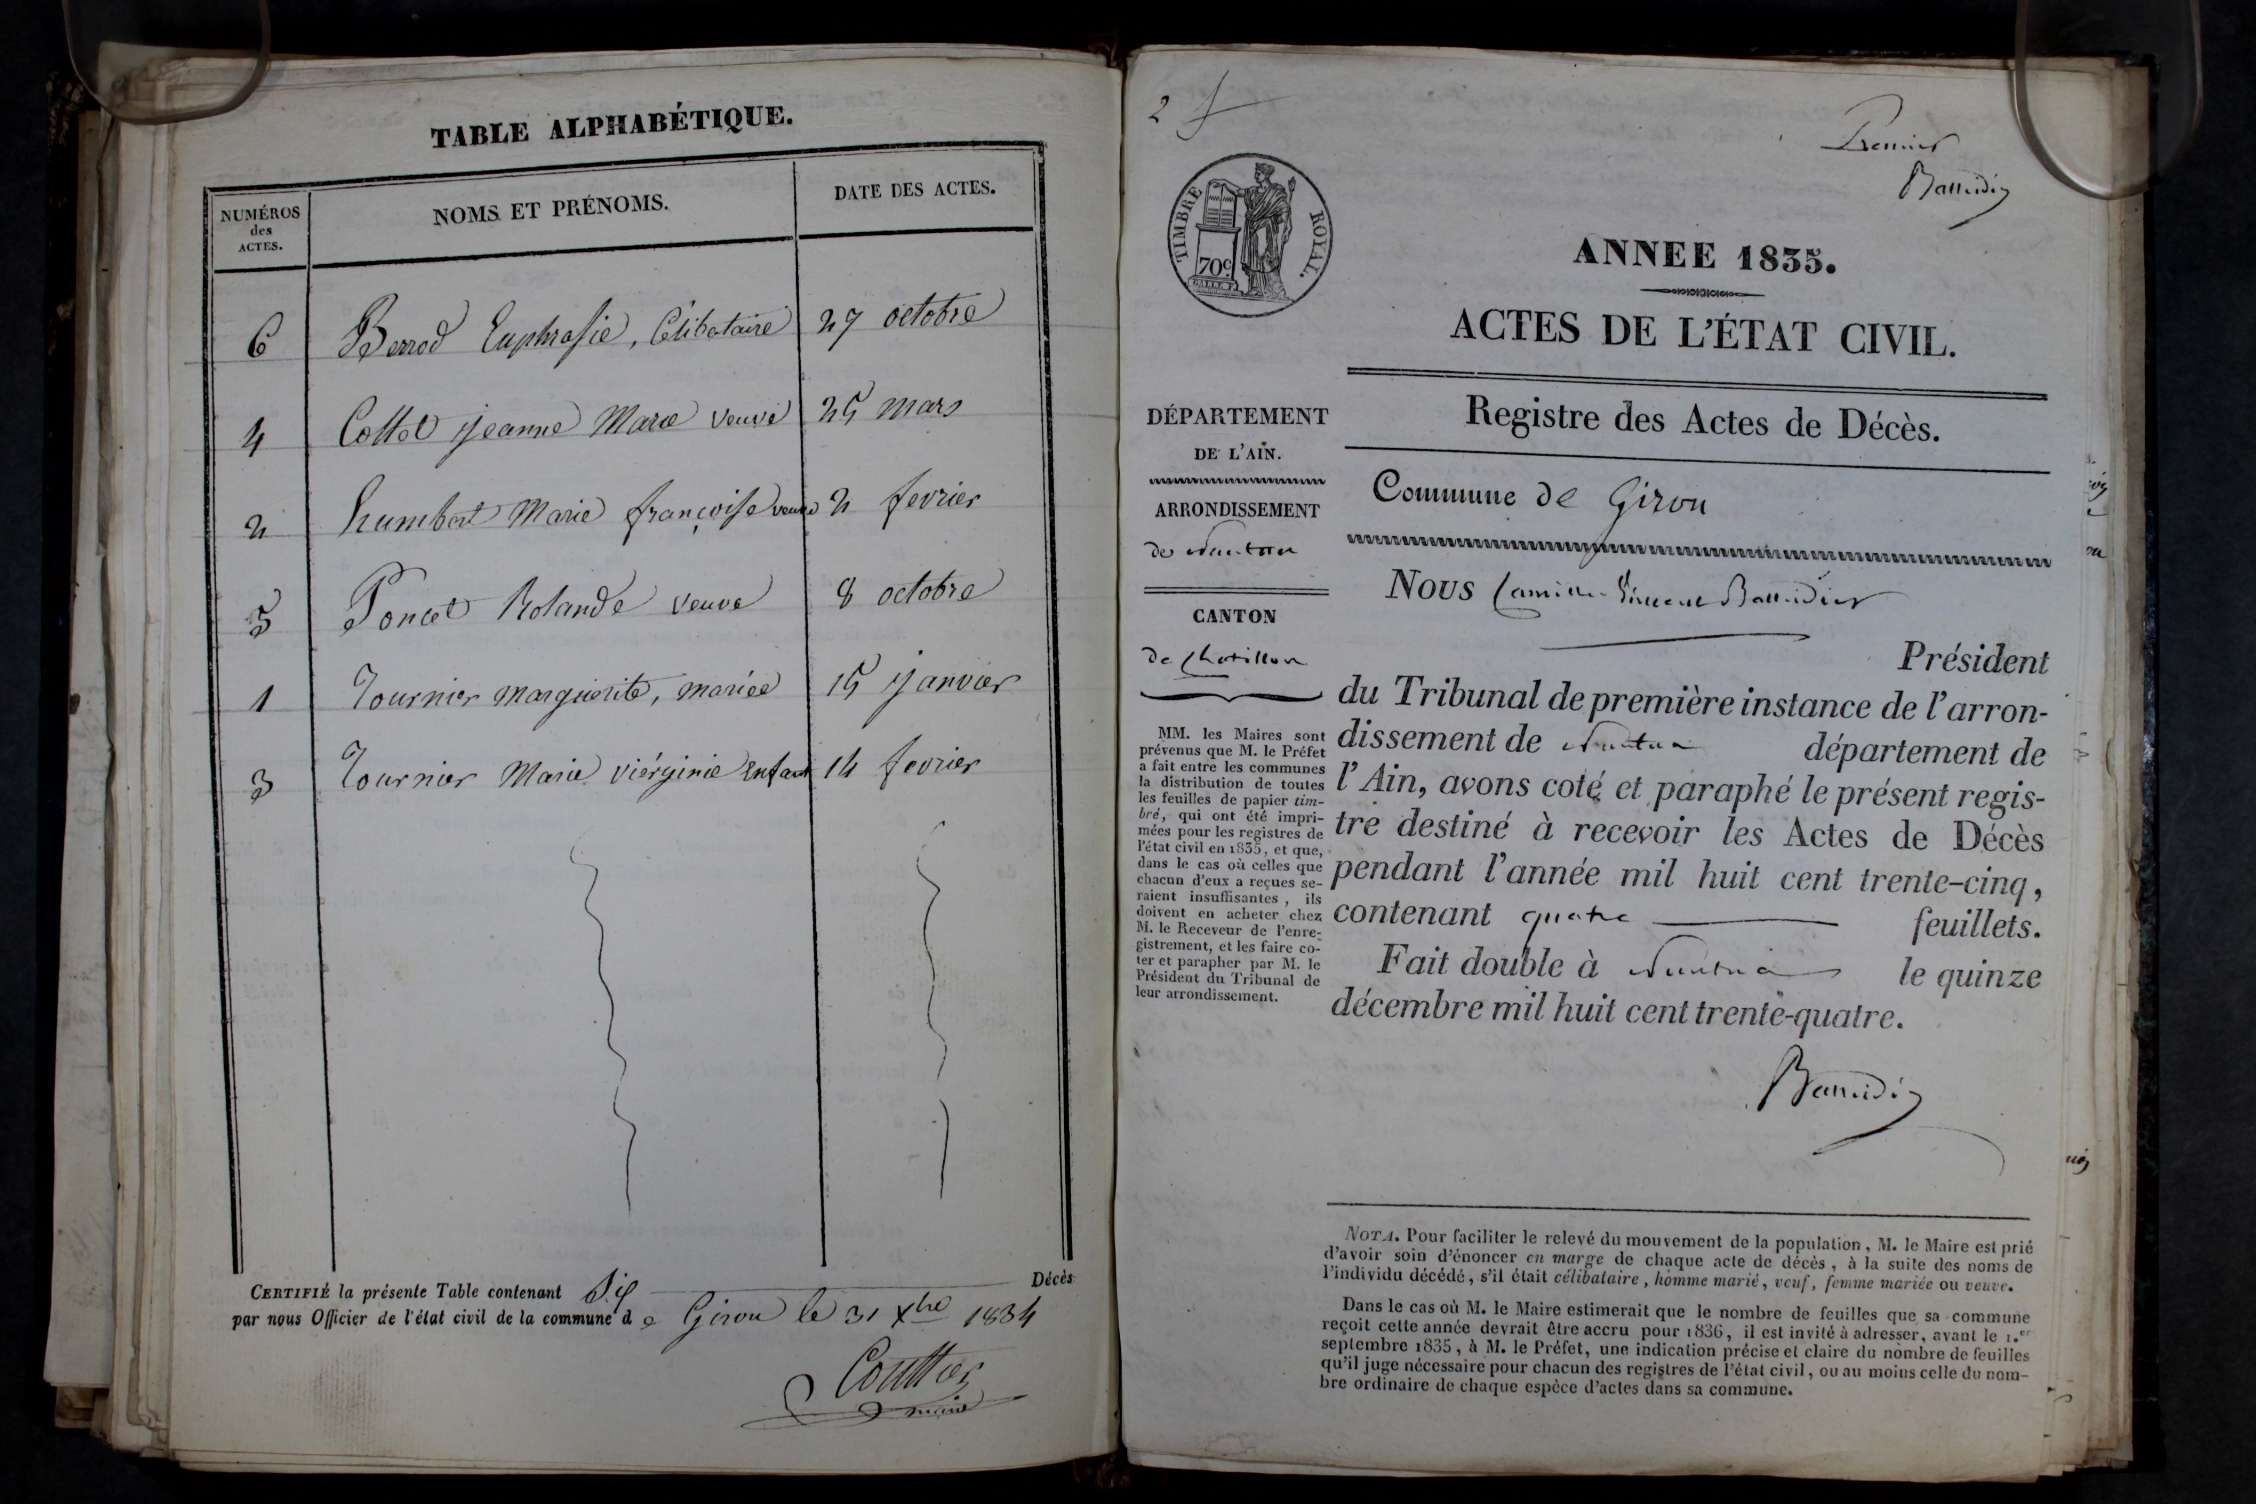 TABLE ALPHABÉTIQUE.
NUMÉROS
des
ACTES.
NOMS ET PRÉNOMS.
DATE DES ACTES.
6 Berrod Euphrasie, Célibataire 27 octobre
4 Cottet jeanne Marie veuve 25 mars
2 humbert Marie françoise veuve 2 fevrier
5 Poncet Rolande veuve 8 octobre
1 Tournier marguerite, mariée 15 janvier
3 Tournier Marie viérginie Enfant 14 fevrier
CERTIFIÉ la présente Table contenant Six Décès
par nous Officier de l'état civil de la commune de Giron le 31 Xbre 1834
maire
2
Premier
TIMBRE ROYAL.
70c
ANNEE 1835.
ACTES DE L'ÉTAT CIVIL.
Registre des Actes de Décès.
DÉPARTEMENT
DE L'AIN.
ARRONDISSEMENT
de Nantua
CANTON
de Chatillon
MM. les Maires sont
prévenus que M. le Préfet
a fait entre les communes
la distribution de toutes
les feuilles de papier tim-
bré, qui ont été impri-
mées pour les registres de
l'état civil en 1835, et que,
dans le cas où celles que
chacun d'eux a reçues se-
raient insuffisantes, ils
doivent en acheter chez
M. le Receveur de l'enre-
gistrement, et les faire co-
ter et parapher par M. le
Président du Tribunal de
leur arrondissement.
Commune de Giron
Nous Camille Vincent
Président
du Tribunal de première instance de l'arron-
dissement de Nantua département de
l'Ain, avons coté et paraphé le présent regis-
tre destiné à recevoir les Actes de Décès
pendant l'année mil huit cent trente-cinq,
contenant quatre feuillets.
Fait double à Nantua le quinze
décembre mil huit cent trente-quatre.
NOTA. Pour faciliter le relevé du mouvement de la population, M. le Maire est prié
d'avoir soin d'énoncer en marge de chaque acte de décès, à la suite des noms de
l'individu décédé, s'il était célibataire, homme marié, veuf, femme mariée ou veuve.
Dans le cas où M. le Maire estimerait que le nombre de feuilles que sa commune
reçoit cette année devrait être accru pour 1836, il est invité à adresser, avant le 1.er
septembre 1835, à M. le Préfet, une indication précise et claire du nombre de feuilles
qu'il juge nécessaire pour chacun des registres de l'état civil, ou au moins celle du nom-
bre ordinaire de chaque espèce d'actes dans sa commune.